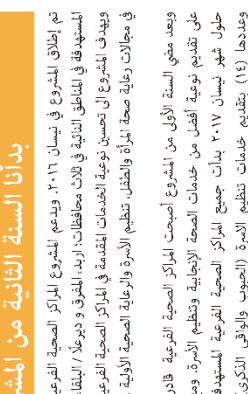 بدأنا السنة الثانية من
تم إطلاق المشروع في نيسان ٢٠١٦. ويدعم المشروع المراكز الصحية
المستهدفة في المناطق النائية في ثلاث محافظات: اربد، المفرق و ديرعلا / البلقاء
ويهدف المشروع الى تحسين نوعية الخدمات المقدمة في المراكز الصحية
في مجالات رعاية صحة المرأة والطفل، تنظيم الأسرة والرعاية الصحية الأولية
وبعد مضي السنة الأولى من المشروع أصبحت المراكز الصحية الفرعية
على تقديم نوعية أفضل من خدمات الصحة الإنجابية وتنظيم الأسرة.
حلول شهر نيسان ٢٠١٧ بدأت جميع المراكز الصحية الفرعية
وعددها (١٤) بتقديم خدمات تنظيم الأسرة (الحبوب والواقي الذكري)